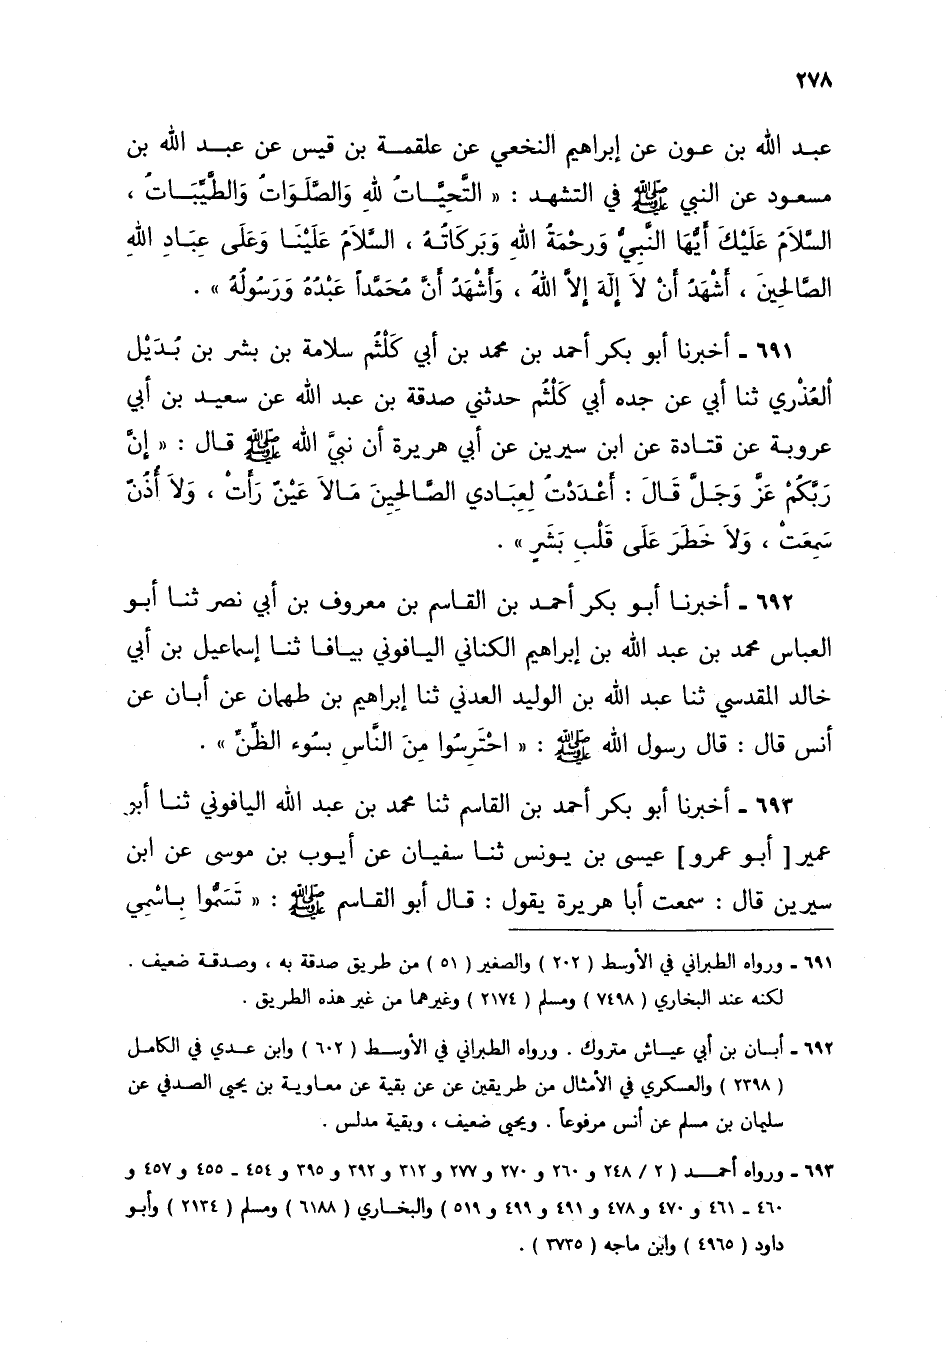 ٢٧٨
عبد الله بن عون عن إبراهيم النخعي عن علقمة بن قيس عن عبد الله بن
مسعود عن النبي ﷺ في التشهد : « التَّحِيَّاتُ للهِ وَالصَّلَوَاتُ وَالطَّيِّبَاتُ ،
السَّلاَمُ عَلَيْكَ أَيُّهَا النَّبِيُّ وَرَحْمَةُ اللهِ وَبَرَكَاتُهُ ، السَّلاَمُ عَلَيْنَا وَعَلَى عِبَادِ اللهِ
الصَّالِحِينَ ، أَشْهَدُ أَنْ لاَ إِلَهَ إِلاَّ اللهُ ، وَأَشْهَدُ أَنَّ مُحَمَّداً عَبْدُهُ وَرَسُولُهُ » .
٦٩١ ـ أخبرنا أبو بكر أحمد بن محمد بن أبي كَلْثُم سلامة بن بشر بن بُدَيْل
ألعُذْري ثنا أبي عن جده أبي كَلْثُم حدثني صدقة بن عبد الله عن سعيد بن أبي
عروبة عن قتادة عن ابن سيرين عن أبي هريرة أن نبيَّ الله ﷺ قال : « إِنَّ
رَبَّكُمْ عَزَّ وَجَلَّ قَالَ : أَعْدَدْتُ لِعِبَادي الصَّالِحِينَ مَالاَ عَيْنٌ رَأَتْ ، وَلاَ أُذُنٌ
سَمِعَتْ ، وَلاَ خَطَرَ عَلَى قَلْبِ بَشَرٍ » .
٦٩٢ ـ أخبرنا أبو بكر أحمد بن القاسم بن معروف بن أبي نصر ثنا أبو
العباس محمد بن عبد الله بن إبراهيم الكناني اليافوني بيافا ثنا إسماعيل بن أبي
خالد المقدسي ثنا عبد الله بن الوليد العدني ثنا إبراهيم بن طهمان عن أبان عن
أنس قال : قال رسول الله ﷺ : « احْتَرِسُوا مِنَ النَّاسِ بِسُوءِ الظَّنِّ » .
٦٩٣ ـ أخبرنا أبو بكر أحمد بن القاسم ثنا محمد بن عبد الله اليافوني ثنا أبو
عمير [ أبو عمرو ] عيسى بن يونس ثنا سفيان عن أيوب بن موسى عن ابن
سيرين قال : سمعت أبا هريرة يقول : قال أبو القاسم ﷺ : « تَسَمُّوا بِاسْمِي
٦٩١ ـ ورواه الطبراني في الأوسط ( ٢٠٢ ) والصغير ( ٥١ ) من طريق صدقة به ، وصدقة ضعيف .
لكنه عند البخاري ( ٧٤٩٨ ) ومسلم ( ٢١٧٤ ) وغيرهما من غير هذه الطريق .
٦٩٢ ـ أبان بن أبي عياش متروك . ورواه الطبراني في الأوسط ( ٦٠٢ ) وابن عدي في الكامل
( ٢٣٩٨ ) والعسكري في الأمثال من طريقين عن عن بقية عن معاوية بن يحيى الصدفي عن
سليمان بن مسلم عن أنس مرفوعاً . ويحيى ضعيف ، وبقية مدلس .
٦٩٣ ـ ورواه أحمد ( ٢ / ٢٤٨ و ٢٦٠ و ٢٧٠ و ٢٧٧ و ٣١٢ و ٣٩٢ و ٣٩٥ و ٤٥٤ ـ ٤٥٥ و ٤٥٧ و
٤٦٠ ـ ٤٦١ و ٤٧٠ و ٤٧٨ و ٤٩١ و ٤٩٩ و ٥١٩ ) والبخاري ( ٦١٨٨ ) ومسلم ( ٢١٣٤ ) وأبو
داود ( ٤٩٦٥ ) وابن ماجه ( ٣٧٣٥ ) .